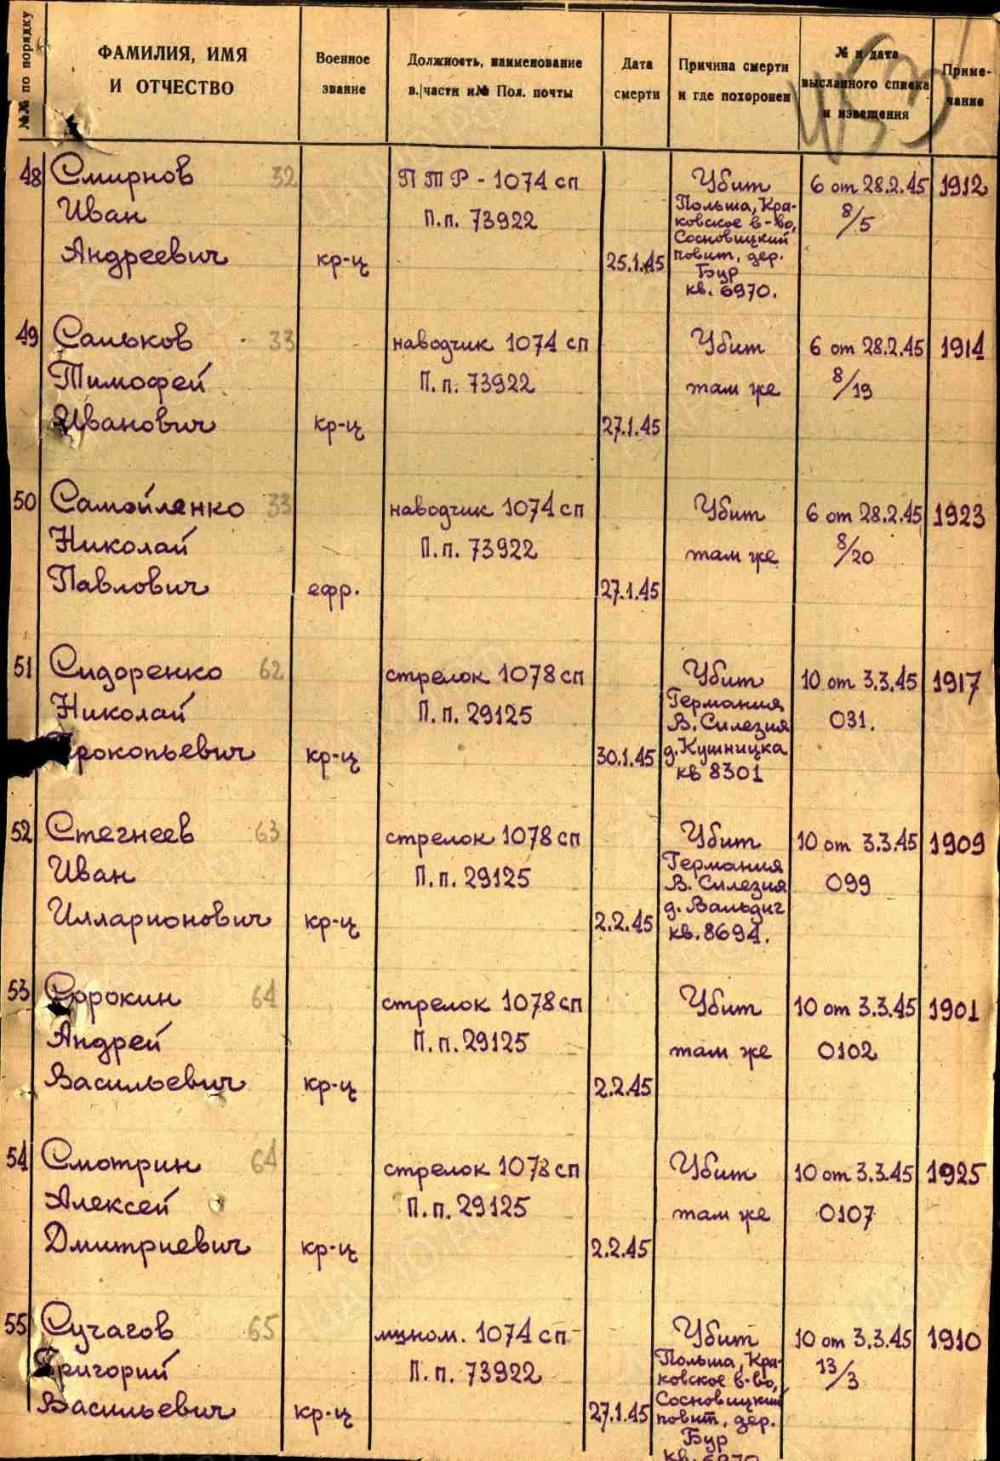 №№ по порядку
ФАМИЛИЯ, ИМЯ
И ОТЧЕСТВО
Военное
звание
Должность, наименование
в. части и № Пол. почты
Дата
смерти
Причина смерти
и где похоронен
№ и дата
высланного списка
и извещения
Приме-
чание
48 Смирнов 32 ПТР - 1074 сп Убит 6 от 28.2.45 1912
Иван П.п. 73922 Польша, Кра- 8/5
ковское в-во,
Сосновицкий
Андреевич кр-ц 25.1.45 повит, дер.
Бур
кв. 6970.
49 Саньков 33 наводчик 1074 сп Убит 6 от 28.2.45 1914
Тимофей П.п. 73922 там же 8/19
Иванович кр-ц 27.1.45
50 Самойленко 33 наводчик 1074 сп Убит 6 от 28.2.45 1923
Николай П.п. 73922 там же 8/20
Павлович ефр. 27.1.45
51 Сидоренко 62 стрелок 1078 сп Убит 10 от 3.3.45 1917
Николай П.п. 29125 Германия 031.
В. Силезия
Прокопьевич кр-ц 30.1.45 д. Кушницка
кв 8301
52 Стегнеев 63 стрелок 1078 сп Убит 10 от 3.3.45 1909
Иван П.п. 29125 Германия 099
В. Силезия
Илларионович кр-ц 2.2.45 д. Вальдиг
кв. 8694.
53 Сорокин 64 стрелок 1078 сп Убит 10 от 3.3.45 1901
Андрей П.п. 29125 там же 0102
Васильевич кр-ц 2.2.45
54 Смотрин 64 стрелок 1078 сп Убит 10 от 3.3.45 1925
Алексей П.п. 29125 там же 0107
Дмитриевич кр-ц 2.2.45
55 Сучагов 65 мином. 1074 сп Убит 10 от 3.3.45 1910
Григорий П.п. 73922 Польша, Кра- 13/3
ковское в-во,
Сосновицкий
Васильевич кр-ц 27.1.45 повит, дер.
Бур
кв. 6970